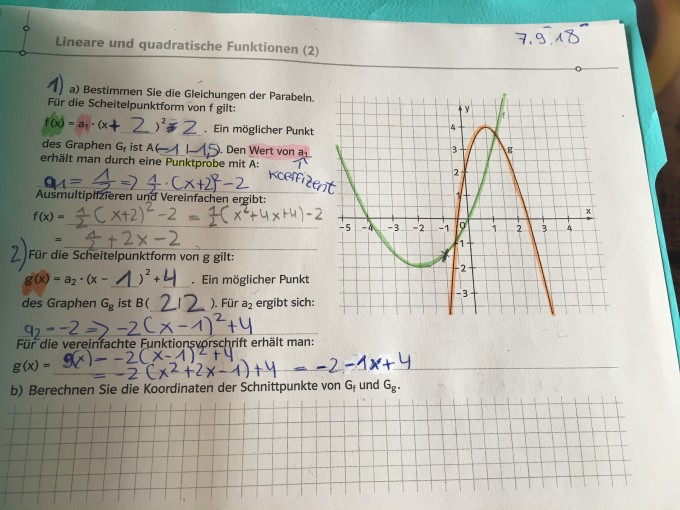 Lineare und quadratische Funktionen (2)
7.9.18
1) a) Bestimmen Sie die Gleichungen der Parabeln.
Für die Scheitelpunktform von f gilt:
f(x) = a₁ · (x + 2)² - 2 . Ein möglicher Punkt
des Graphen Gf ist A(-1 | -1,5). Den Wert von a₁
erhält man durch eine Punktprobe mit A:
Koeffizent
a1 = 1/2 => 1/2 · (x+2)² - 2
Ausmultiplizieren und Vereinfachen ergibt:
f(x) = 1/2 (x+2)² - 2 = 1/2 (x² + 4x + 4) - 2
= 1/2 + 2x - 2
2) Für die Scheitelpunktform von g gilt:
g(x) = a₂ · (x - 1)² + 4 . Ein möglicher Punkt
des Graphen Gg ist B( 2 | 2 ). Für a₂ ergibt sich:
a2 = -2 => -2(x-1)² + 4
Für die vereinfachte Funktionsvorschrift erhält man:
g(x) = g(x) = -2(x-1)² + 4
= -2(x² + 2x - 1) + 4 = -2 - 1x + 4
b) Berechnen Sie die Koordinaten der Schnittpunkte von Gf und Gg.
y
f
g
4
3
2
1
x
-5 -4 -3 -2 -1 0 1 2 3 4
-1
-2
-3